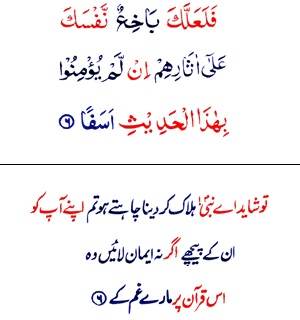 فَلَعَلَّكَ بَاخِعٌ نَّفْسَكَ
عَلٰٓى اٰثَارِهِمْ اِنْ لَّمْ يُؤْمِنُوْا
بِهٰذَا الْحَدِيْثِ اَسَفًا ﴿۶﴾
تو شاید اے نبیؐ! ہلاک کر دینا چاہتے ہو تم اپنے آپ کو
ان کے پیچھے اگر نہ ایمان لائیں وہ
اس قرآن پر مارے غم کے ﴿۶﴾